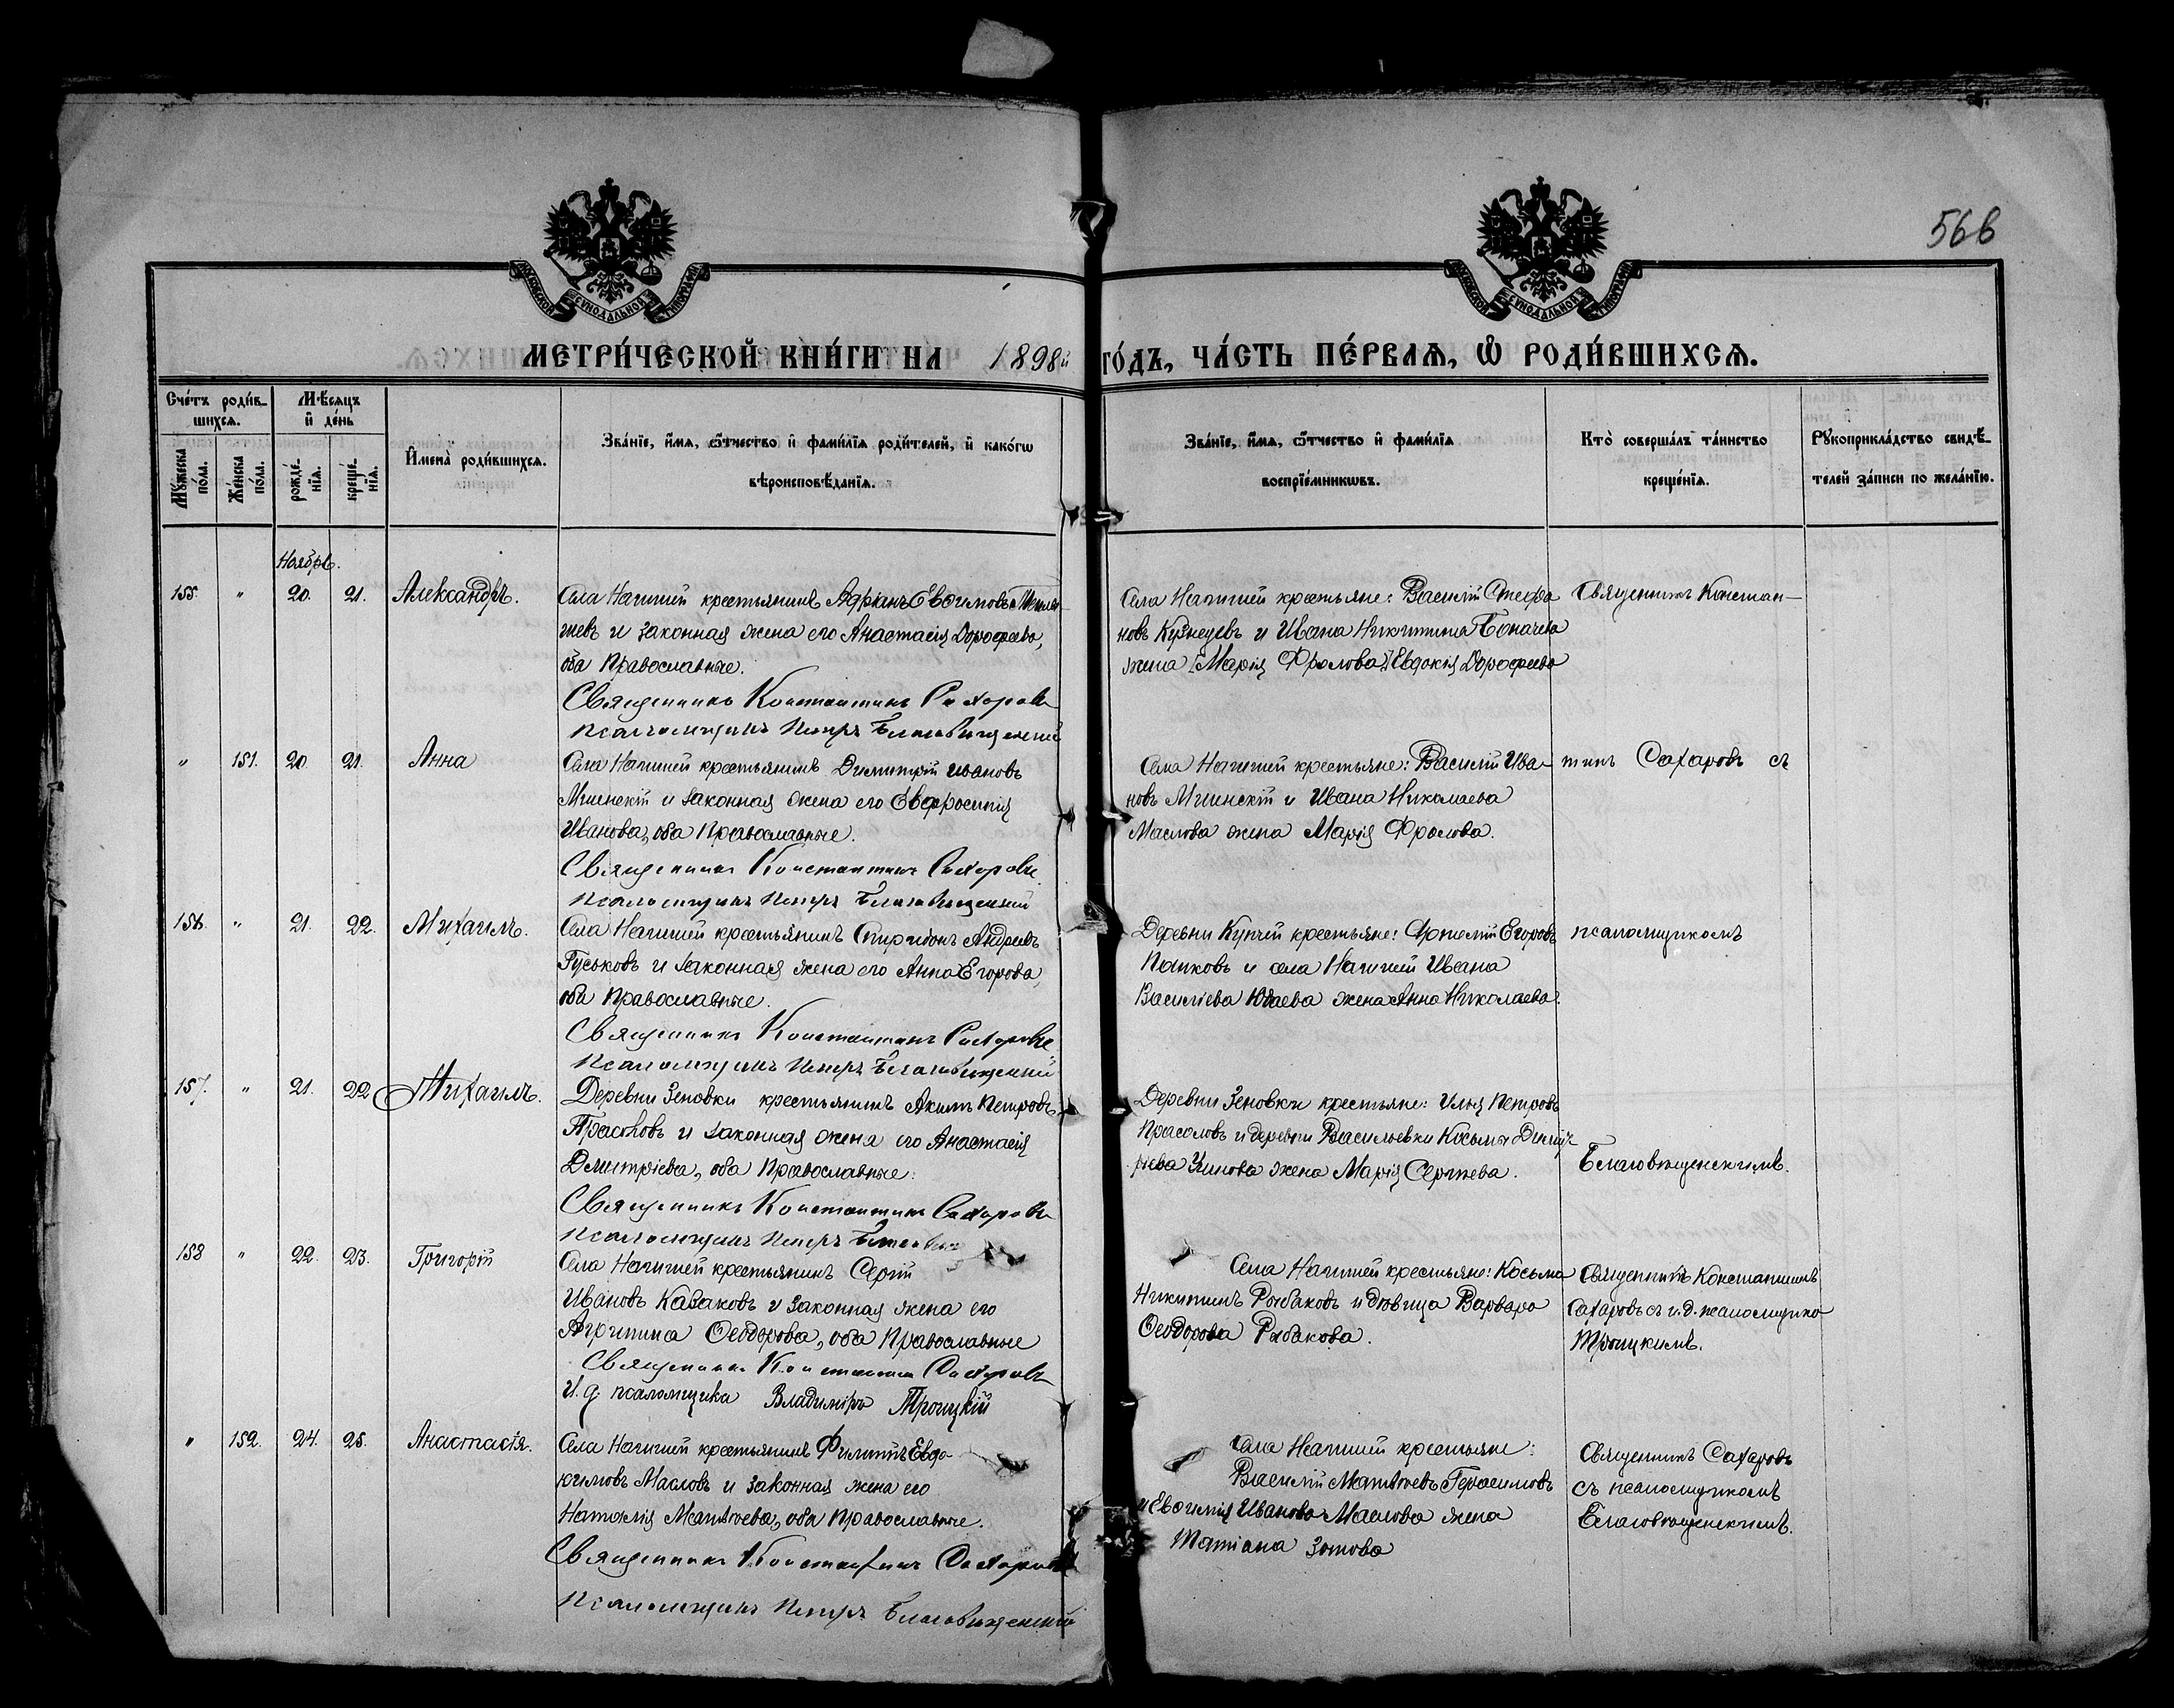 566
МОСКОВСКОЙ СѴНОДАЛЬНОЙ ТИПОГРАФІИ
МОСКОВСКОЙ СѴНОДАЛЬНОЙ ТИПОГРАФІИ
МЕТРИ́ЧЕСКОЙ КНИ́ГИ НА 1898й ГО́ДЪ, ЧА́СТЬ ПЕ́РВАѦ, Ѡ РОДИ́ВШИХСѦ.
Сче́тъ роди́в-
шихсѧ.
Мꙋ́жеска по́ла.
Же́нска по́ла.
Мѣ́сѧцъ и҆ де́нь
рожде́-нїѧ.
креще́-нїѧ.
И҆мена̀ роди́вшихсѧ.
Зва́нїе, и҆́мѧ, ѻ҆́тчество и҆ фами́лїѧ роди́телей, и҆ како́гѡ
вѣроисповѣ́данїѧ.
Зва́нїе, и҆́мѧ, ѻ҆́тчество и҆ фами́лїѧ
воспрїе́мникѡвъ.
Кто̀ соверша́лъ та́инство
креще́нїѧ.
Рꙋкоприкла́дство свидѣ́-
телей за́писи по жела́нїю.
Ноябрь.
155. " 20. 21. Александръ.
Села Нагишей крестьянинъ Адріанъ Евѳимовъ
и законная жена его Анастасія Дорофеева,
оба Православные.
Священникъ Константинъ Сахаровъ
Псаломщикъ Петръ Благовѣщенскій
Села Нагишей крестьяне: Василій Стефа
новъ Кузнецовъ и Ивана Никитина
жена Марія Фролова Евдокія Дорофеева
Священникъ Констан-
" 151. 20. 21. Анна
Села Нагишей крестьянинъ Димитрій Ивановъ
Мшенскій и законная жена его Евфросинія
Иванова, оба Православные.
Священникъ Константинъ Сахаровъ
Псаломщикъ Петръ Благовѣщенскій
Села Нагишей крестьяне: Василій Ива-
новъ Мшенскій и Ивана Николаева
Маслова жена Марія Фролова.
тинъ Сахаровъ съ
156. " 21. 22. Михаилъ.
Села Нагишей крестьянинъ Спиридонъ Андреевъ
Гуськовъ и законная жена его Анна Егорова,
оба Православные.
Священникъ Константинъ Сахаровъ
Псаломщикъ Петръ Благовѣщенскій
Деревни Купчей крестьяне: Артемій Егоровъ
и села Нагишей Ивана
Василіева Юдаева жена Анна Николаева.
псаломщикомъ
157. " 21. 22 Михаилъ.
Деревни Зеновки крестьянинъ Акимъ Петровъ
Прасоловъ и законная жена его Анастасія
Дмитріева, оба Православные.
Священникъ Константинъ Сахаровъ
Псаломщикъ Петръ
Деревни Зеновки крестьяне: Илья Петровъ
Прасоловъ и деревни Васильевки Косьмы Димит
ріева жена Марія Сергѣева.
Благовѣщенскимъ.
158 " 22. 23. Григорій
Села Нагишей крестьянинъ Сергій
Ивановъ Казаковъ и законная жена его
Агрипина Ѳеодорова, оба Православные
Священникъ Константинъ Сахаровъ
И. д. псаломщика Владиміръ Троицкій
Села Нагишей крестьяне: Косьма
Никитинъ Рыбаковъ и дѣвица Варвара
Ѳеодорова Рыбакова.
Священникъ Константинъ
Сахаровъ съ и. д. псаломщика
Троицкимъ.
" 152. 24. 25. Анастасія.
Села Нагишей крестьянинъ Филиппъ Евдо-
кимовъ Масловъ и законная жена его
Наталія Матвѣева, оба Православные.
Священникъ Константинъ Сахаровъ
Псаломщикъ Петръ Благовѣщенскій
Села Нагишей крестьяне:
Василій Матвѣевъ Герасимовъ
и Евѳимія Иванова Маслова жена
Татіана Зотова
Священникъ Сахаровъ
съ псаломщикомъ
Благовѣщенскимъ.